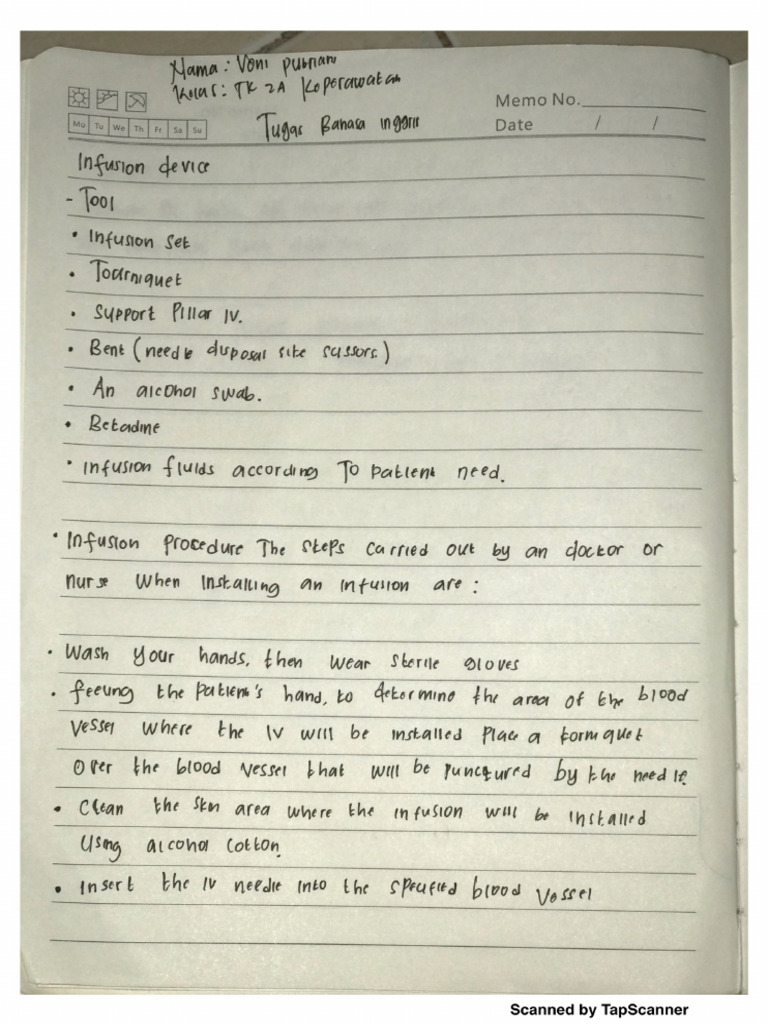 Nama : Voni
Kelas : TK 2A Keperawatan
Memo No.
Mo Tu We Th Fr Sa Su
Tugas Bahasa inggris
Date / /
Infusion device
- Tool
• Infusion Set
• Tourniquet
• Support Pillar IV.
• Bent (needle disposal site scissors)
• An alcohol swab.
• Betadine
• infusion fluids according To patient need.
• Infusion procedure The steps carried out by an doctor or
nurse when installing an infusion are :
• Wash your hands, then wear sterile gloves
• feeling the patient's hand, to determine the area of the blood
vessel where the IV will be installed place a tormquet
over the blood vessel that will be punctured by the needle.
• Clean the skin area where the infusion will be installed
Using alcohol cotton.
• Insert the IV needle into the specified blood vessel
Scanned by TapScanner